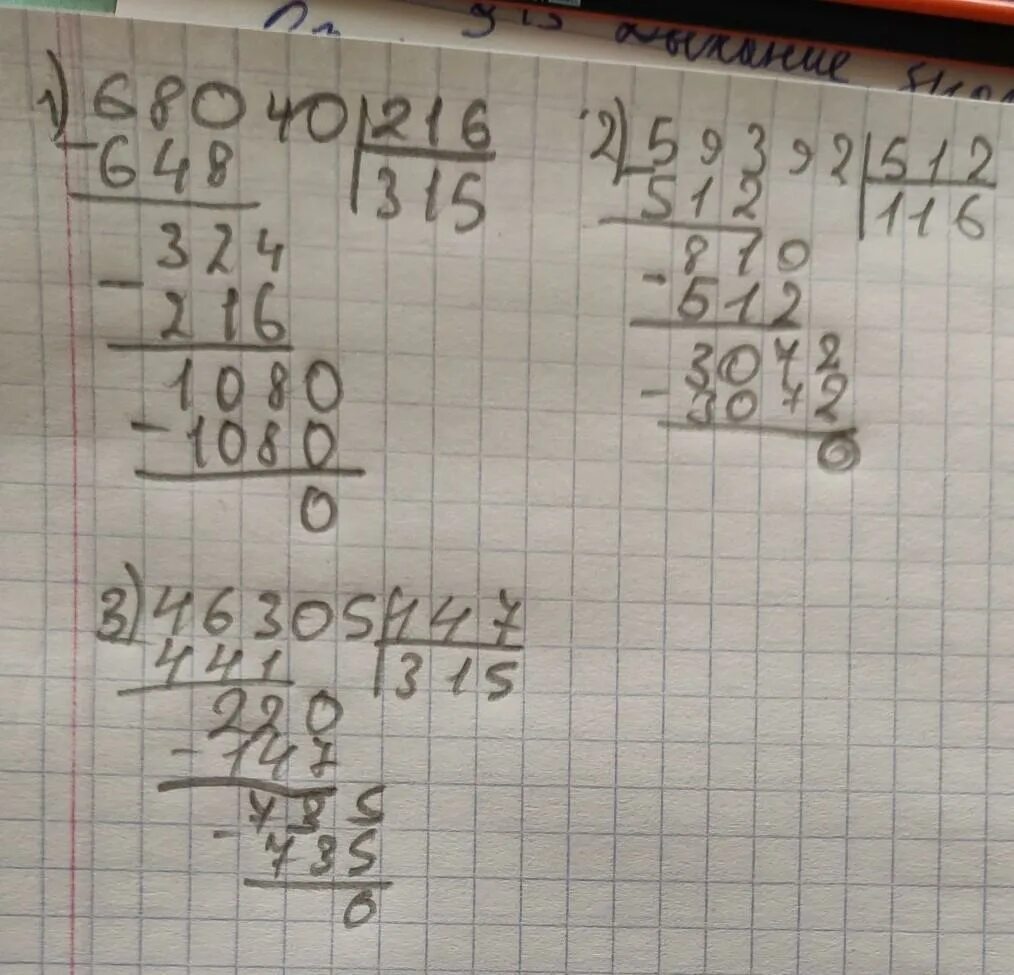 мыхание
1) 68040 | 216
- 648 | 315
324
- 216
1080
- 1080
0
2) 59392 | 512
- 512 | 116
810
- 512
3072
- 3072
0
3) 46305 | 147
- 441 | 315
220
- 147
735
- 735
0